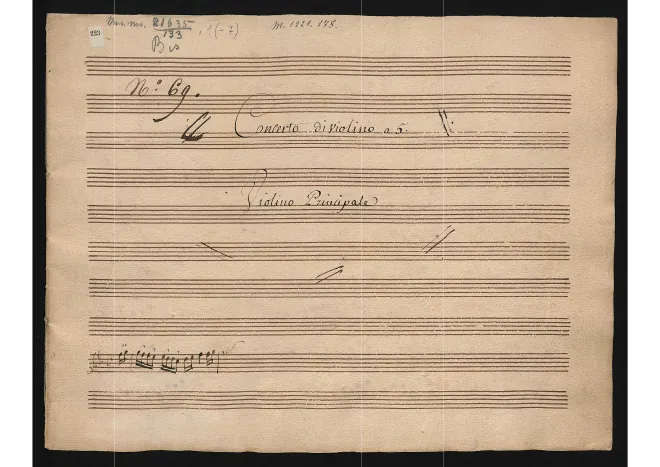 Mus. ms. 21635
133
, 1(-7)
M. 1921. 178.
233
Bis
No. 69.
Concerto di violino a 5.
Violino Principale